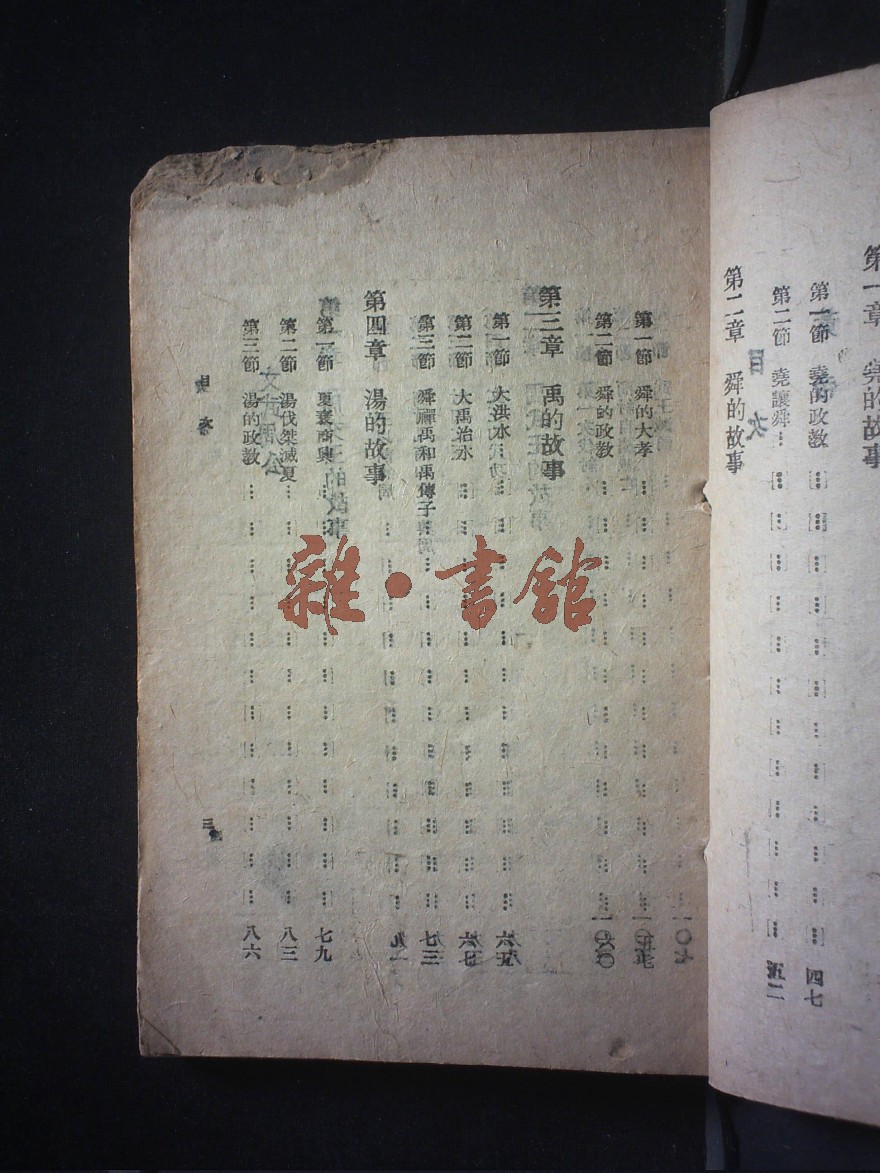 第一章 堯的故事
第一節 堯的政教……四七
第二節 堯讓舜……五二
第二章 舜的故事
第一節 舜的大孝……
第二節 舜的政教……六〇
第三章 禹的故事
第一節 大洪水……六五
第二節 大禹治水……
第三節 舜禪禹和禹傳子……七三
第四章 湯的故事
第一節 夏衰商興……七九
第二節 湯伐桀滅夏……八三
第三節 湯的政教……八六
目次
三
雜·書館